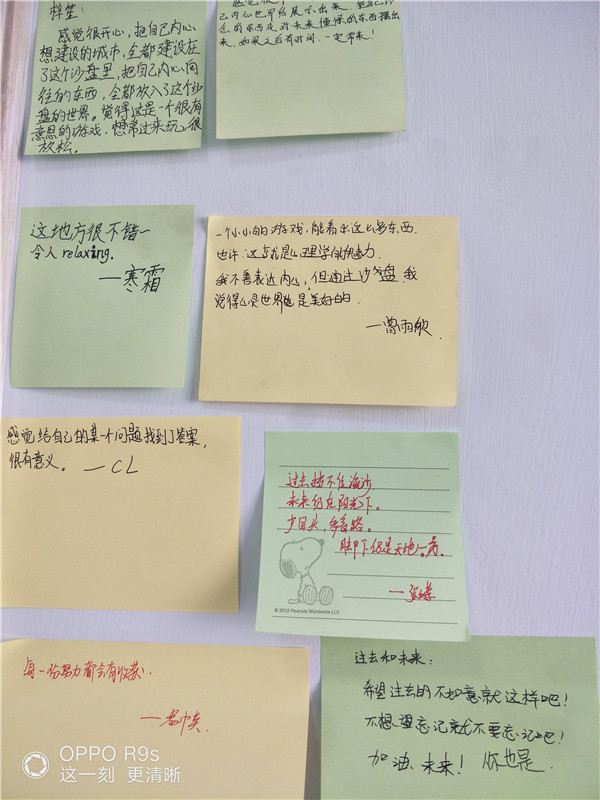 样笙：
感觉很开心，把自己内心
想建设的城市，全都建设在
了这个沙盘里，把自己内心向
往的东西，全都放入了这个沙
盘的世界。觉得这是一个很有
意思的游戏，想常过来玩，很
放松。
己内心世界给展示出来，
念的东西及对未来憧憬的东西摆出
来，如果之后有时间，一定常来！
这地方很不错~
令人relaxing.
—寒霜
一个小小的游戏，能看出这么多东西.
也许这点就是心理学的魅力
我不善表达内心，但通过沙盘，我
觉得心灵世界也是美好的.
—曾雨欣.
感觉给自己的某个问题找到了答案，
很有意义。—CL
过去挡不住流沙.
未来仍在阳光下.
少回头，多看路。
脚下仍是天地一片。
© 2012 Peanuts Worldwide LLC
每一份努力都会有收获.
过去和未来：
希望过去的不如意就这样吧！
不想望忘记就不要忘记吧！
加油、未来！你也是.
OPPO R9s
这一刻 更清晰